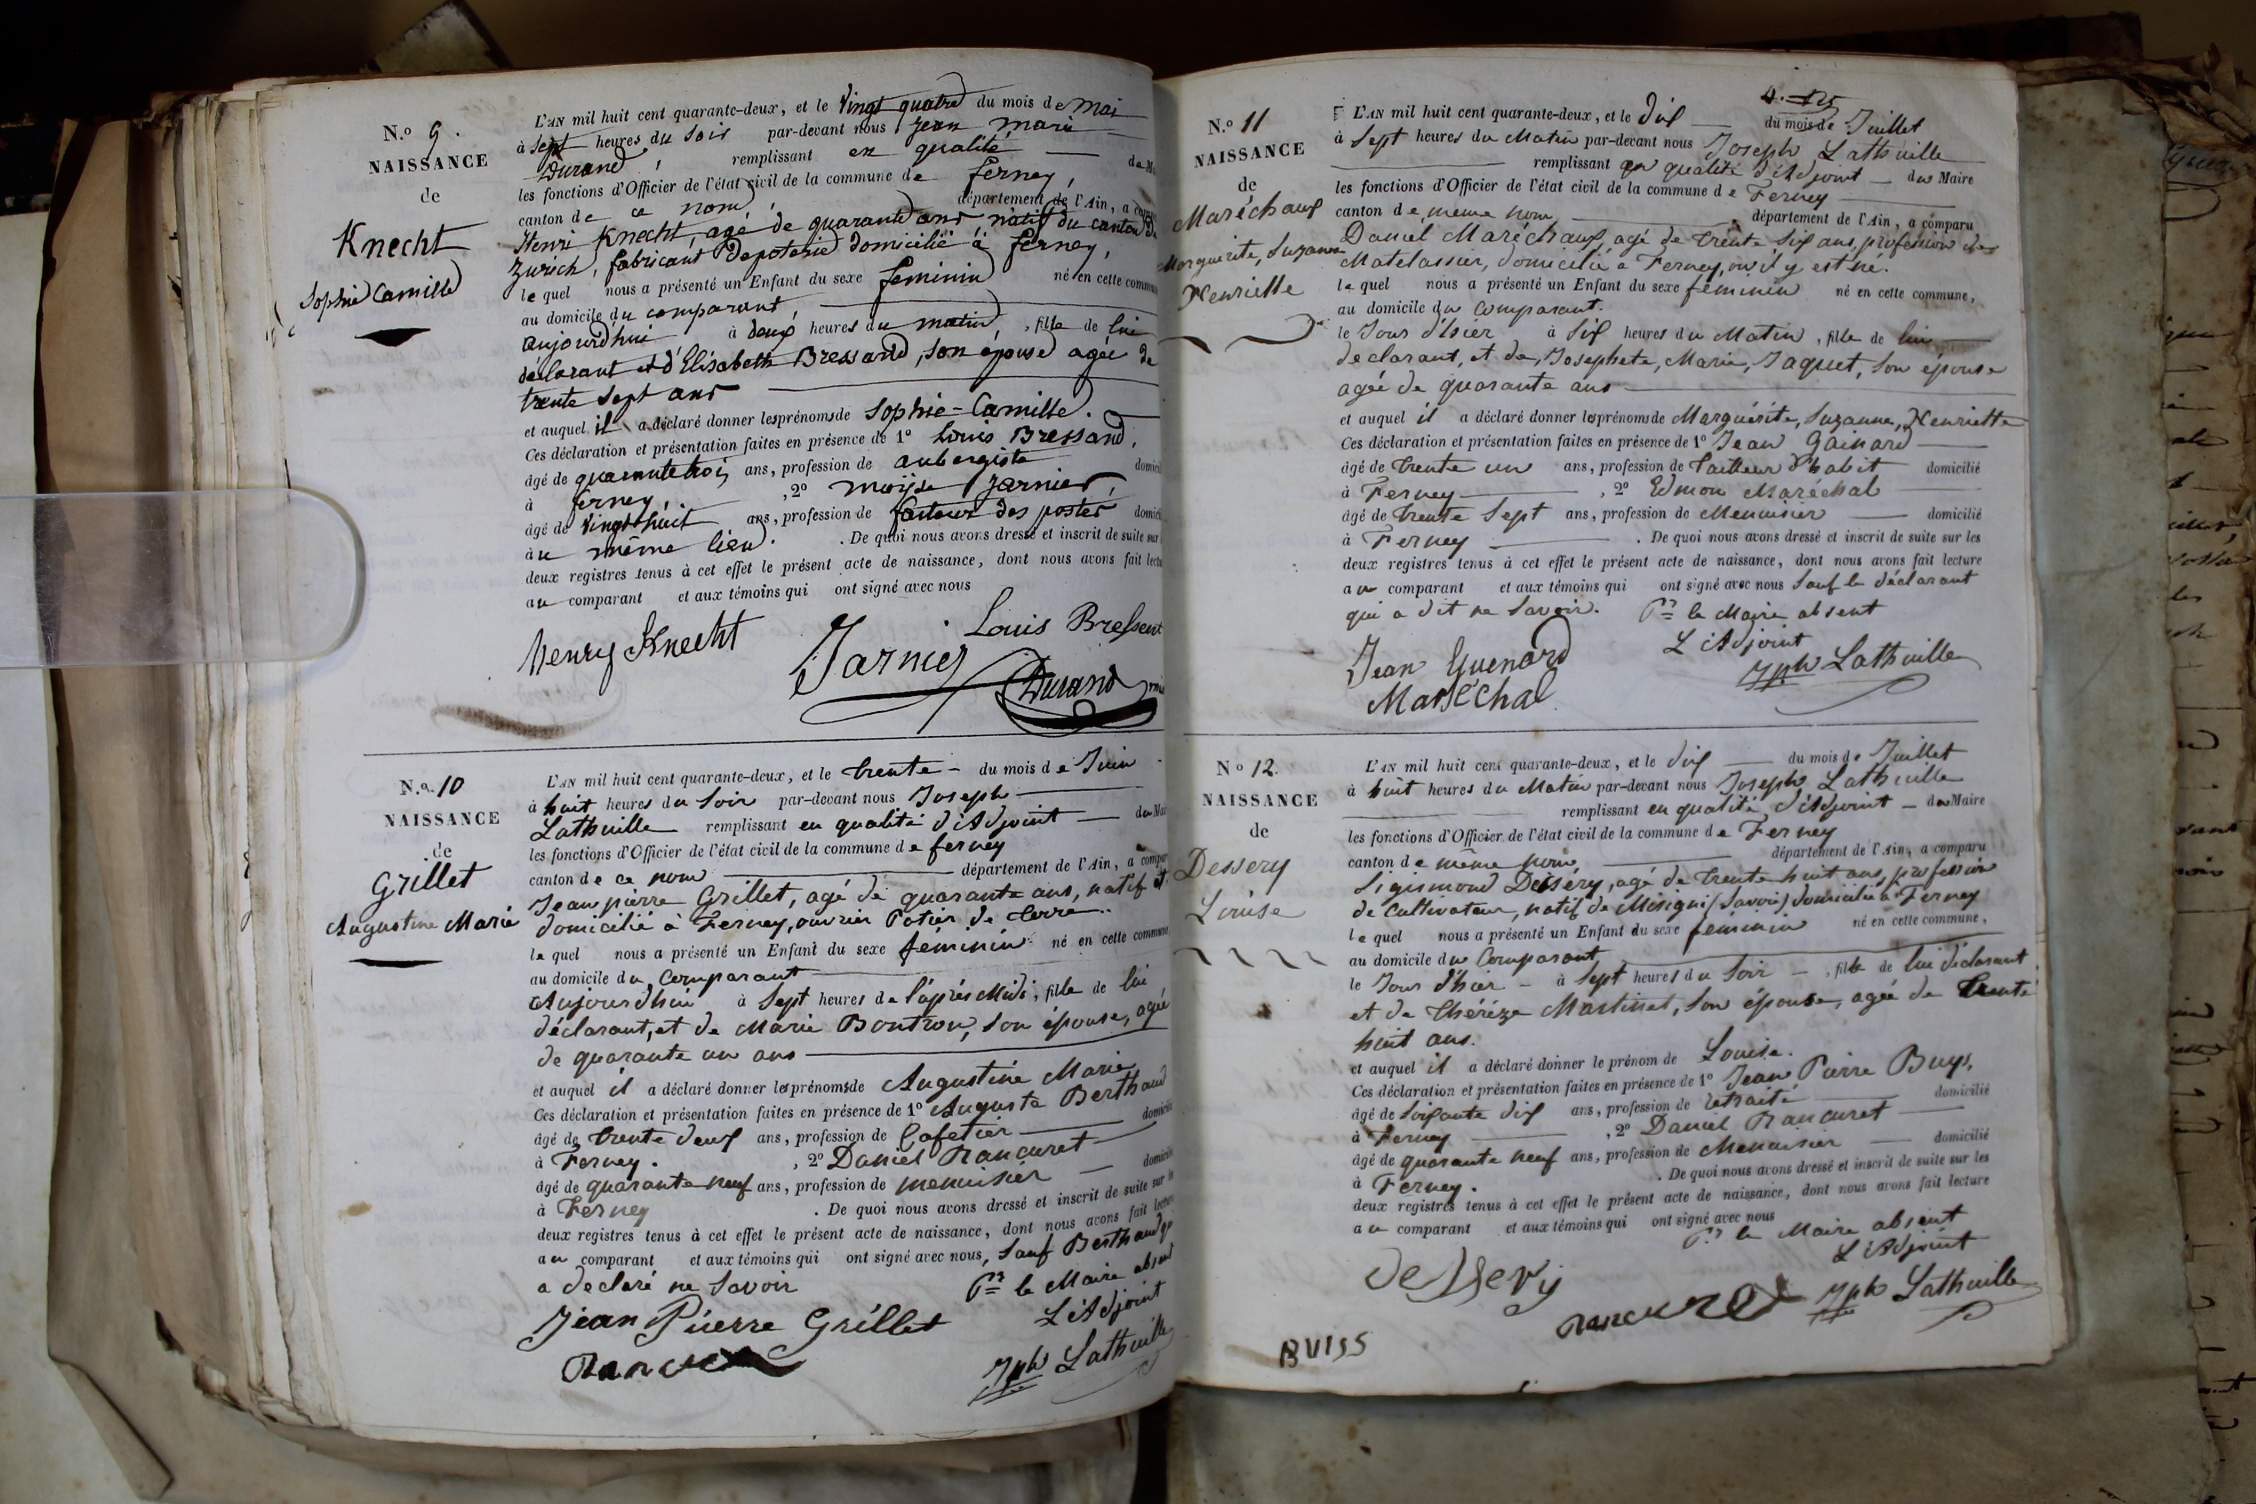 N.o 9.
NAISSANCE
de
Knecht
Sophie Camille
L'AN mil huit cent quarante-deux, et le vingt quatre du mois de mai
à sept heures du soir par-devant nous jean marie
Durand, remplissant en qualité de M
les fonctions d'Officier de l'état civil de la commune de ferney,
canton de ce nom, département de l'Ain, a comp
Henri Knecht, agé de quarante ans, natif du canton de
Zurich, fabricant De poterie domicilié à ferney,
lequel nous a présenté un Enfant du sexe feminin né en cette commun
au domicile du comparant,
aujourdhui à deux heures du matin, fille de lui
déclarant et d'Elisabeth Bressand, son épouse agée de
trente sept ans
et auquel il a déclaré donner les prénoms de Sophie-Camille.
Ces déclaration et présentation faites en présence de 1o Louis Bressand,
âgé de quarante trois ans, profession de aubergiste domicil
à ferney, , 2o moïse Jarnier,
âgé de vingt-huit ans, profession de facteur des postes domici
àu même lieu. . De quoi nous avons dressé et inscrit de suite sur
deux registres tenus à cet effet le présent acte de naissance, dont nous avons fait lectu
au comparant et aux témoins qui ont signé avec nous
Louis Bressent
henry Knecht
Jarnier
Durand
N.o 10
NAISSANCE
de
Grillet
Augustine Marie
L'AN mil huit cent quarante-deux, et le trente du mois de Juin
à huit heures du Soir par-devant nous Joseph
Lathuille remplissant en qualité d'Adjoint du Mai
les fonctions d'Officier de l'état civil de la commune de ferney
canton de ce nom département de l'Ain, a compar
Jean pierre Grillet, agé de quarante ans, natif et
domicilié à Ferney, ouvrier Potier de terre.
lequel nous a présenté un Enfant du sexe féminin né en cette commune
au domicile du Comparant
Aujourd'hui à Sept heures de l'après Midi, fille de lui
déclarant, et de Marie Bontron, son épouse, agée
de quarante un ans
et auquel il a déclaré donner les prénoms de Augustine Marie
Ces déclaration et présentation faites en présence de 1o Auguste Berthaud
âgé de trente deux ans, profession de Cafetier domicilié
à Ferney. , 2o Daniel Rancuret
âgé de quarante neuf ans, profession de menuisier domicilié
à Ferney . De quoi nous avons dressé et inscrit de suite sur
deux registres tenus à cet effet le présent acte de naissance, dont nous avons fait lecture
au comparant et aux témoins qui ont signé avec nous, Sauf Berthaud q
a déclaré ne Savoir Pr le Maire absent
L'Adjoint
Jean Pierre Grillet
Jph Lathuille
N.o 11
NAISSANCE
de
Maréchaux
Marguerite, Suzanne
Henriette
L'AN mil huit cent quarante-deux, et le dix du mois de Juillet
à Sept heures du Matin par-devant nous Joseph Lathuille
remplissant en qualité d'Adjoint du Maire
les fonctions d'Officier de l'état civil de la commune de Ferney
canton de même nom département de l'Ain, a comparu
Daniel Maréchaux, agé de trente six ans, profession de
Matelassier, domicilié à Ferney, où il y est né.
lequel nous a présenté un Enfant du sexe féminin né en cette commune,
au domicile du Comparant.
le Jour d'hier à six heures du Matin, fille de lui
declarant, et de, Josephete, Marie, Jaquet, son épouse
agée de quarante ans
et auquel il a déclaré donner les prénoms de Marguérite, Suzanne, Henriette
Ces déclaration et présentation faites en présence de 1o Jean Gainard
âgé de trente un ans, profession de tailleur d'habit domicilié
à Ferney , 2o Edmon Maréchal
âgé de trente Sept ans, profession de Menuisier domicilié
à Ferney . De quoi nous avons dressé et inscrit de suite sur les
deux registres tenus à cet effet le présent acte de naissance, dont nous avons fait lecture
au comparant et aux témoins qui ont signé avec nous Sauf le déclarant
qui a dit ne Savoir. Pr le Maire absent
L'Adjoint
Jean Guenard
Jph Lathuille
Maréchal
No 12.
NAISSANCE
de
Dessery
Louise
L'AN mil huit cent quarante-deux, et le dix du mois de Juillet
à huit heures du Matin par-devant nous Joseph Lathuille
remplissant en qualité d'Adjoint du Maire
les fonctions d'Officier de l'état civil de la commune de Ferney
canton de même nom département de l'Ain, a comparu
Sigismond Desséry, agé de trente huit ans, profession
de Cultivateur, natif de Mésigni (Savoie) domicilié à Ferney
lequel nous a présenté un Enfant du sexe féminin né en cette commune,
au domicile du Comparant
le Jour d'hier à Sept heures du Soir, fille de lui déclarant
et de Théréze Martinet, son épouse, agée de trente
huit ans.
et auquel il a déclaré donner le prénom de Louise.
Ces déclaration et présentation faites en présence de 1o Jean Pierre Buys,
âgé de soixante dix ans, profession de retraité domicilié
à Ferney , 2o Daniel Rancuret
âgé de quarante neuf ans, profession de Menuisier domicilié
à Ferney. . De quoi nous avons dressé et inscrit de suite sur les
deux registres tenus à cet effet le présent acte de naissance, dont nous avons fait lecture
au comparant et aux témoins qui ont signé avec nous
Pr le Maire absent
L'Adjoint
Dessery
Rancuret Jph Lathuille
BUISS